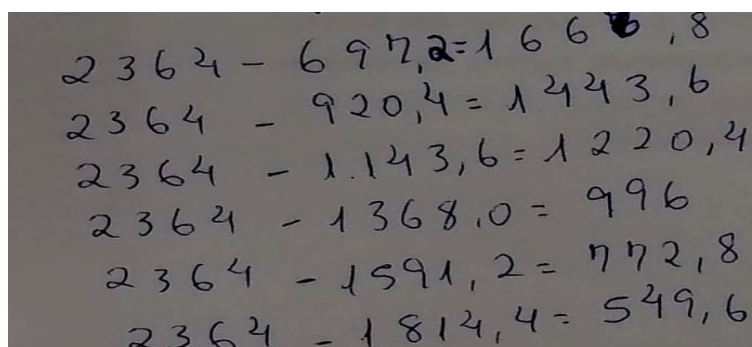 2364 - 697,2=1666,8
2364 - 920,4=1443,6
2364 - 1.143,6=1220,4
2364 - 1368,0=996
2364 - 1591,2=772,8
2364 - 1814,4=549,6